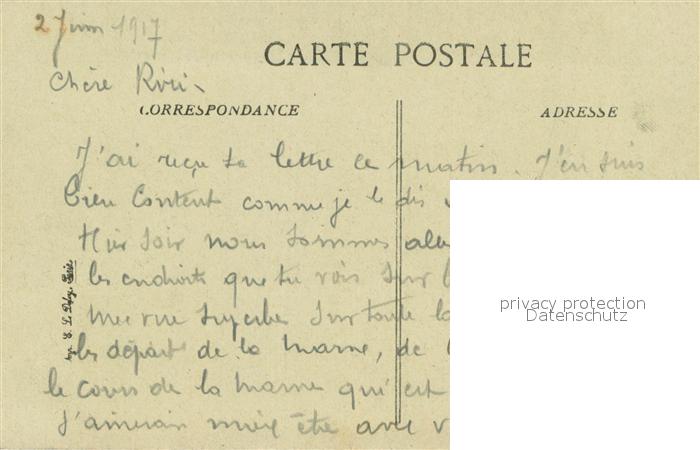 2 Juin 1917
CARTE POSTALE
Chère Riri
CORRESPONDANCE
ADRESSE
J'ai reçu ta lettre ce matin. J'en suis
bien content comme je le dis
Hier soir nous sommes
les endroits que tu vois sur
une vue superbe sur toute
les départs de la Marne, de
le cours de la Marne qui est
J'aimerais mieux être avec v
Imp. E. Le Deley, Paris
privacy protection
Datenschutz